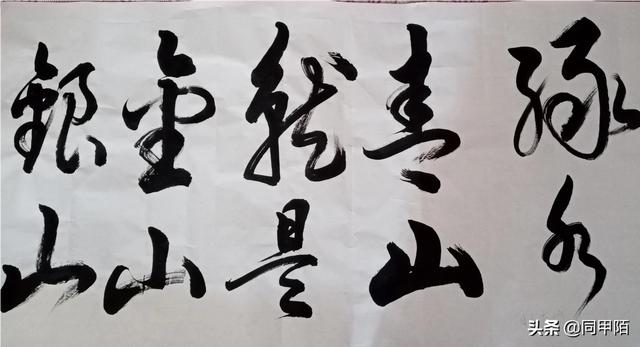 绿水
青山
就是
金山
银山
头条 @同甲陌